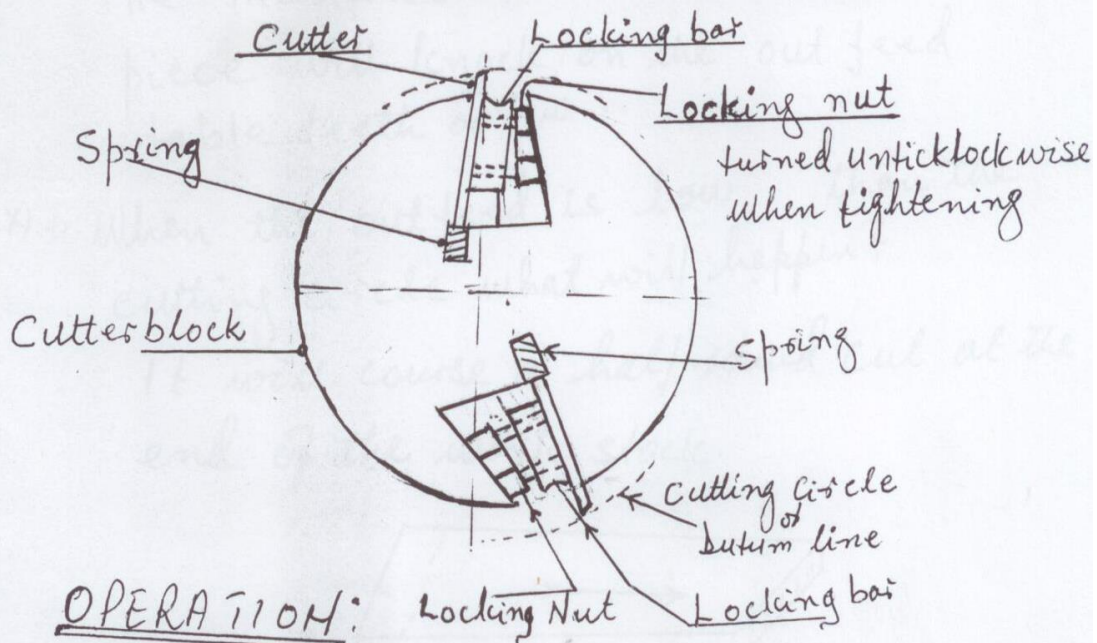 Cutter
Locking bar
Locking nut
turned unticklockwise
when tightening
Spring
Cutterblock
Spring
Cutting Circle
or
Dutum line
Locking Nut
Locking bar
OPERATION: